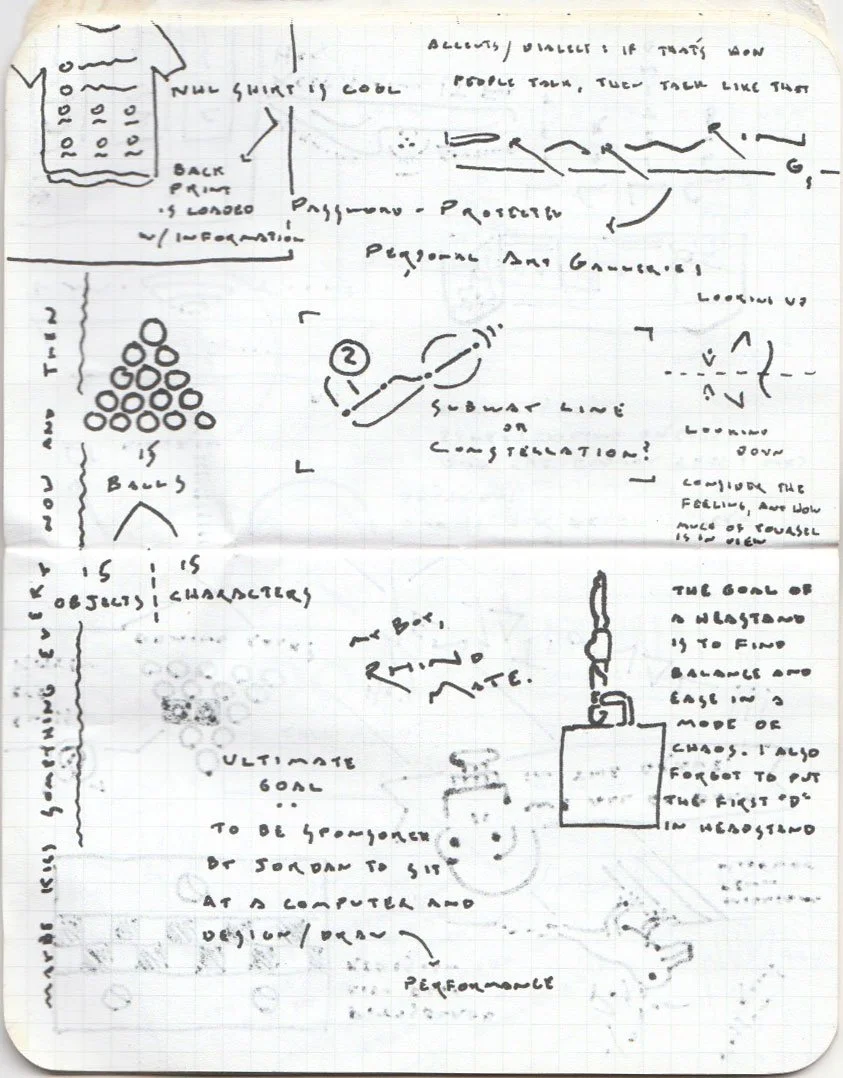 NHL SHIRT IS COOL
BACK
PRINT
IS LOADED
W/ INFORMATION
ACCENTS/ DIALECT: IF THAT'S HOW
PEOPLE TALK, THEN TALK LIKE THAT
PASSWORD-PROTECTED
PERSONAL ART GALLERIES
MAYBE KISS SOMETHING EVERY NOW AND THEN
IS
BALLS
IS
OBJECTS
IS
CHARACTERS
2
SUBWAY LINE
OR
CONSTELLATION?
LOOKING UP
LOOKING
DOWN
CONSIDER THE
FEELING, AND HOW
MUCH OF YOURSELF
IS IN VIEW
THE GOAL OF
A HEASTAND
IS TO FIND
BALANCE AND
EASE IN A
MODE OF
CHAOS. I ALSO
FORGOT TO PUT
THE FIRST "D"
IN HEADSTAND
ULTIMATE
GOAL
:
TO BE SPONSORED
BY JORDAN TO SIT
AT A COMPUTER AND
DESIGN/DRAW
PERFORMANCE